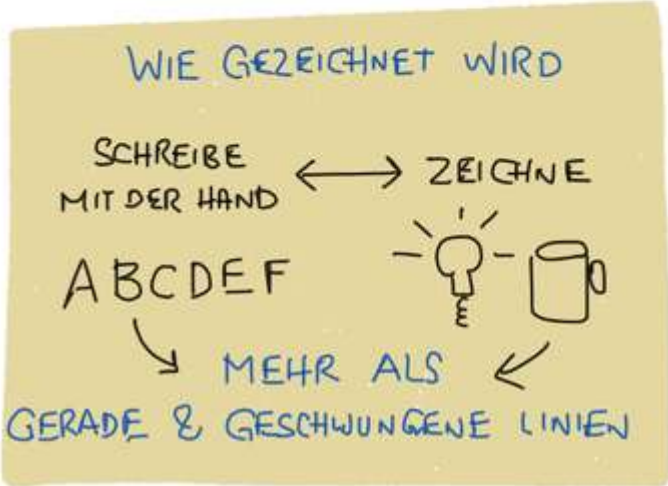 WIE GEZEICHNET WIRD
SCHREIBE
MIT DER HAND
ZEICHNE
ABCDEF
MEHR ALS
GERADE & GESCHWUNGENE LINIEN